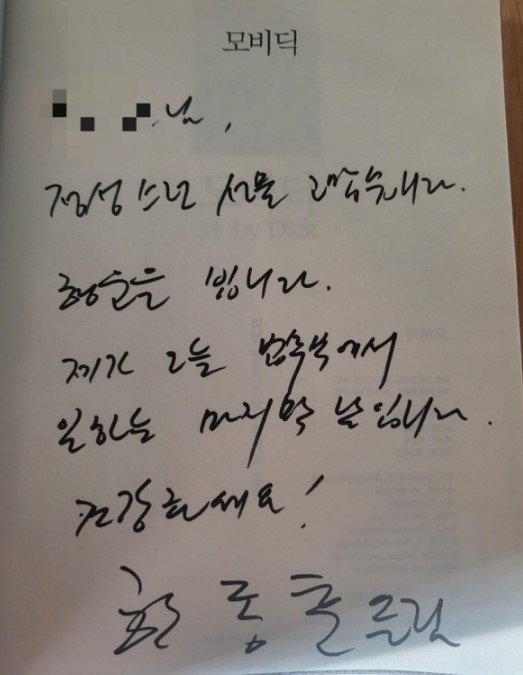 모비딕
님,
정성스런 선물 고맙습니다.
Moby Dick
행운을 빕니다.
제가 오늘 법무부에서
일하는 마지막 날입니다.
건강하세요!
한동훈 드림